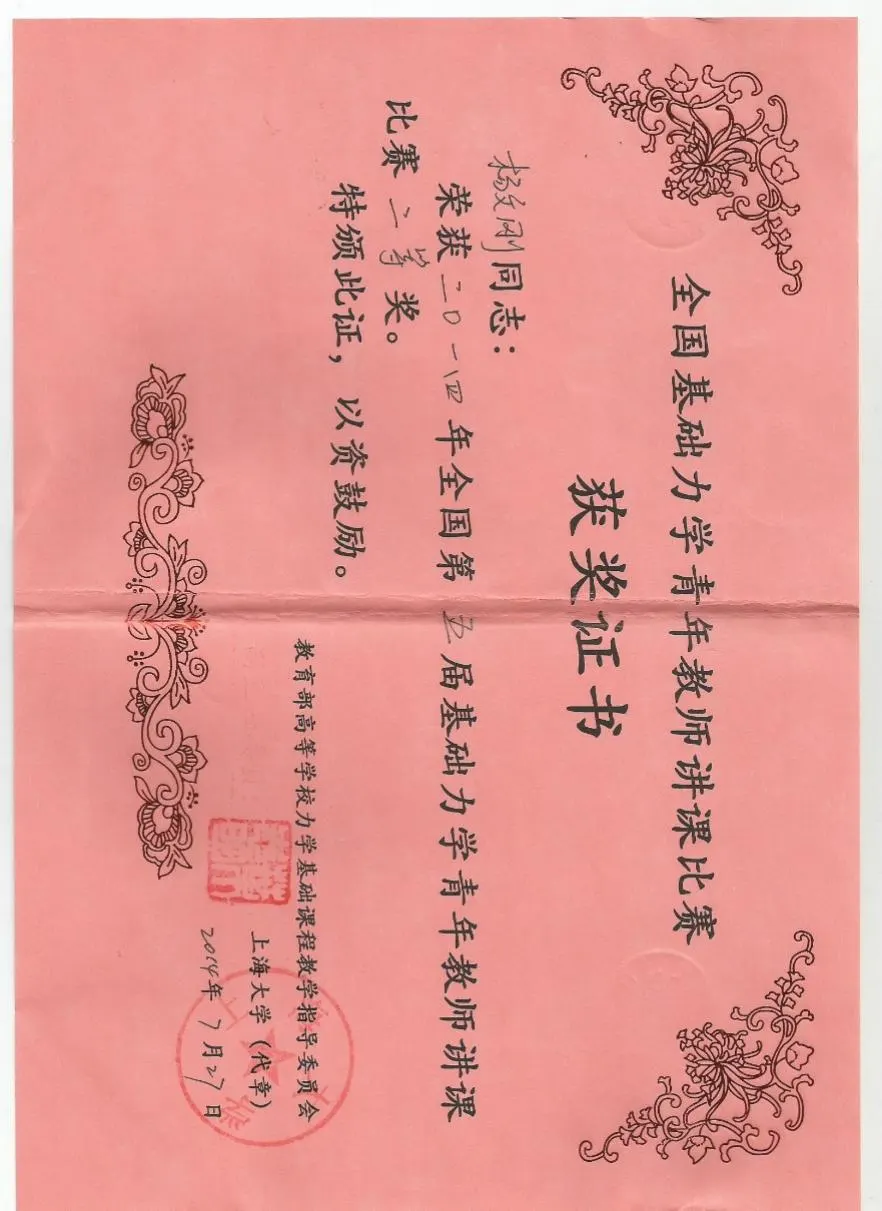 全国基础力学青年教师讲课比赛
获奖证书
杨文刚同志：
荣获二〇一四年全国第五届基础力学青年教师讲课
比赛二等奖。
特颁此证，以资鼓励。
教育部高等学校力学基础课程教学指导委员会
上海大学（代章）
2014年7月27日